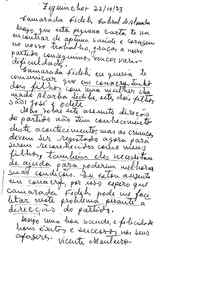 Ziguinchor 22/10/63
Camarada Fidelis Cabral d'Almada
Espero que esta pequena carta te vá
encontrar de optima saúde e coragem
no vosso trabalho, graças a nosso
partido conseguimos vencer varias
dificuldades.
Camarada Fidelis eu queria te
comunicar que em conacry tenho
dois filhos com uma mulher cha
mada
são José e Odete
sobre este assunto direcção
do partido não tem conhecimento
deste acontecimento, mas as crianças
devem ser registados agora para
serem reconhecidos como meus
filhos, também eles necessitam
de ajuda para poderem melhorar
suas condições. Eu estou ausente
em conacry, por isso espero que
camarada Fidelis pode me faci
litar neste problema perante a
direcção do partido.
Desejo uma boa saúde e felicidade
bons êxitos e sucessos nos seus
afazeres. Vicente